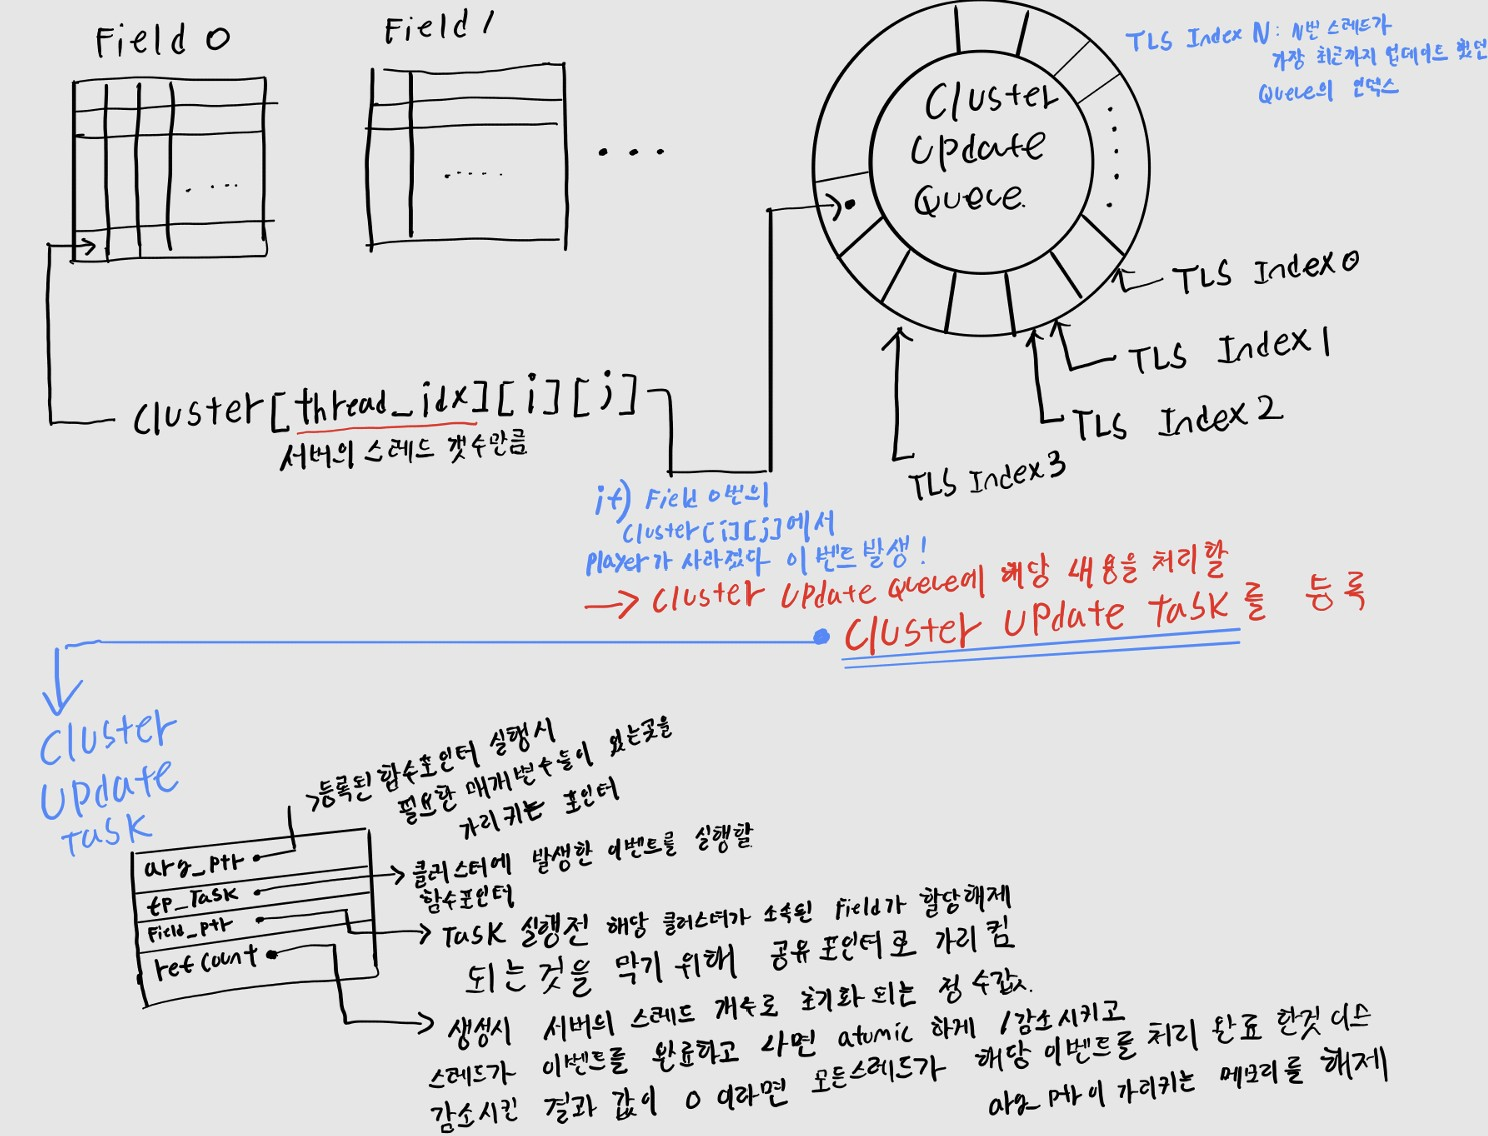 Field 0
Field 1
Cluster
Update
Queue
TLS Index N: N번 스레드가
가장 최근까지 업데이트 했던
Queue의 인덱스
TLS Index 0
TLS Index 1
TLS Index 2
TLS Index 3
Cluster[thread_idx][i][j]
서버의 스레드 갯수만큼
if) Field 0번의
Cluster[i][j]에서
Player가 사라졌다 이벤트발생!
→ Cluster Update Queue에 해당 내용을 처리할
Cluster Update Task를 등록
Cluster
Update
Task
arg_ptr
fp_Task
Field_ptr
ref count
등록된 함수포인터 실행시
필요한 매개변수들이 있는곳을
가리키는 포인터
클러스터에 발생한 이벤트를 실행할
함수포인터
Task 실행전 해당 클러스터가 소속된 Field가 할당해제
되는 것을 막기 위해 공유 포인터로 가리킴
생성시 서버의 스레드 개수로 초기화 되는 정수값.
스레드가 이벤트를 완료하고 나면 atomic 하게 1감소시키고
감소시킨 결과 값이 0 이라면 모든스레드가 해당 이벤트를 처리 완료 한것 이므
arg_ptr이 가리키는 메모리를 해제